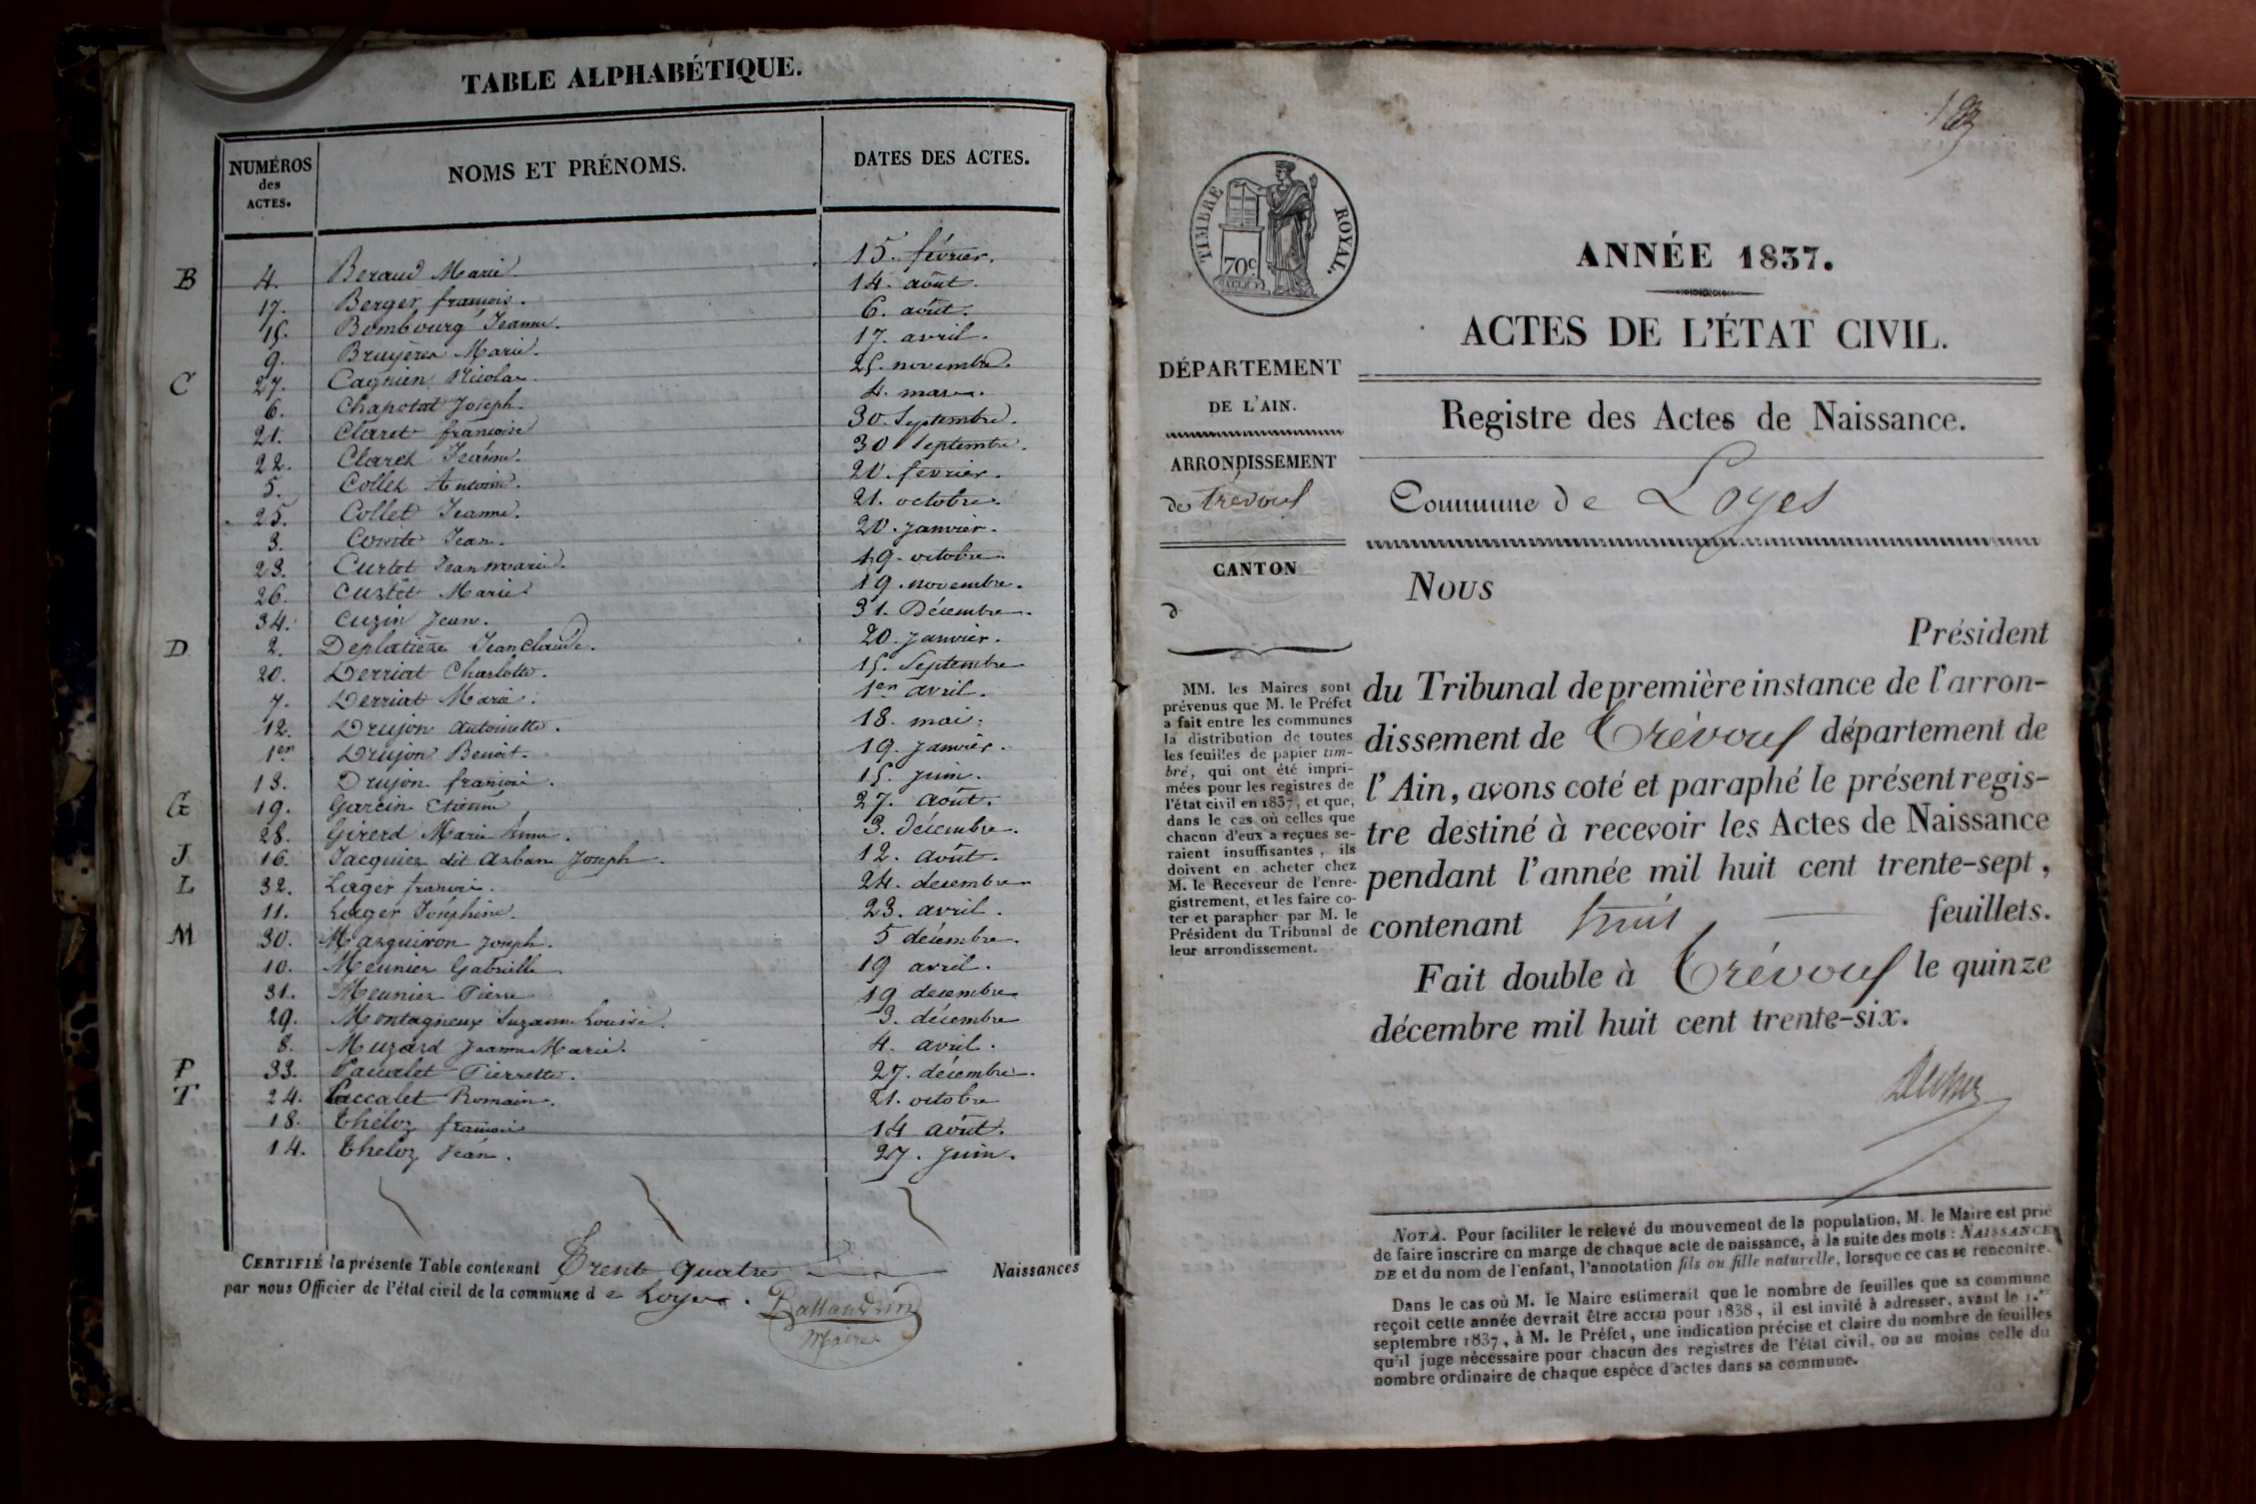 TABLE ALPHABÉTIQUE.
NUMÉROS
des
ACTES.
NOMS ET PRÉNOMS.
DATES DES ACTES.
B 4. Beraud Marie 15. février.
17. Berger françois. 14. août.
15. Bombourg Jeanne. 6. août.
9. Bruyères Marie. 17. avril.
C 27. Cagnien Nicolas. 25. novembre.
6. Chapotat Joseph. 4. mars.
21. Claret françoise 30. Septembre.
22. Claret Jeanne. 30 Septembre.
5. Collet Antoine. 20. février.
25. Collet Jeanne. 21. octobre.
3. Comte Jean. 20. janvier.
23. Curtet Jean marie. 19. octobre
26. Curtet Marie 19. novembre.
34. Cuzin Jean. 31. Décembre.
D 2. Deplatière Jean Claude. 20. janvier.
20. Derriat Charlotte. 15. Septembre
7. Derriat Marie. 1er avril.
12. Drujon Antoinette. 18. mai.
1er Drujon Benoit. 19. janvier.
13. Drujon 15. juin.
G 19. Garcin Etienne 27. août.
28. Girerd Marie Anne. 3. décembre.
J 16. Jacquier dit Arban Joseph. 12. août.
L 32. Lager 24. décembre
11. Lager Joséphine. 23. avril.
M 30. Marguiron Joseph. 5 décembre.
10. Meunier Gabrielle 19 avril.
31. Meunier Pierre 19 décembre
29. Montagneux Suzanne Louise. 3. décembre
8. Muzard Jeanne Marie. 4. avril.
P 33. Paccalet Pierrette. 27. décembre.
T 24. Paccalet Romain. 21. octobre
18. Théloz 14 août.
14. Théloz Jean. 27. juin.
CERTIFIÉ la présente Table contenant Trente quatre Naissances
par nous Officier de l'état civil de la commune de Loyes.
Maire
TIMBRE ROYAL.
70c
ANNÉE 1837.
ACTES DE L'ÉTAT CIVIL.
Registre des Actes de Naissance.
Commune de Loyes
DÉPARTEMENT
DE L'AIN.
ARRONDISSEMENT
de Trévoux
CANTON
d
MM. les Maires sont
prévenus que M. le Préfet
a fait entre les communes
la distribution de toutes
les feuilles de papier tim-
bré, qui ont été impri-
mées pour les registres de
l'état civil en 1837, et que,
dans le cas où celles que
chacun d'eux a reçues se-
raient insuffisantes, ils
doivent en acheter chez
M. le Receveur de l'enre-
gistrement, et les faire co-
ter et parapher par M. le
Président du Tribunal de
leur arrondissement.
Nous
Président
du Tribunal de première instance de l'arron-
dissement de Trévoux département de
l'Ain, avons coté et paraphé le présent regis-
tre destiné à recevoir les Actes de Naissance
pendant l'année mil huit cent trente-sept,
contenant huit feuillets.
Fait double à Trévoux le quinze
décembre mil huit cent trente-six.
NOTA. Pour faciliter le relevé du mouvement de la population, M. le Maire est prié
de faire inscrire en marge de chaque acte de naissance, à la suite des mots : NAISSANCE
DE et du nom de l'enfant, l'annotation fils ou fille naturelle, lorsque ce cas se rencontre.
Dans le cas où M. le Maire estimerait que le nombre de feuilles que sa commune
reçoit cette année devrait être accru pour 1838, il est invité à adresser, avant le 1.er
septembre 1837, à M. le Préfet, une indication précise et claire du nombre de feuilles
qu'il juge nécessaire pour chacun des registres de l'état civil, ou au moins celle du
nombre ordinaire de chaque espèce d'actes dans sa commune.